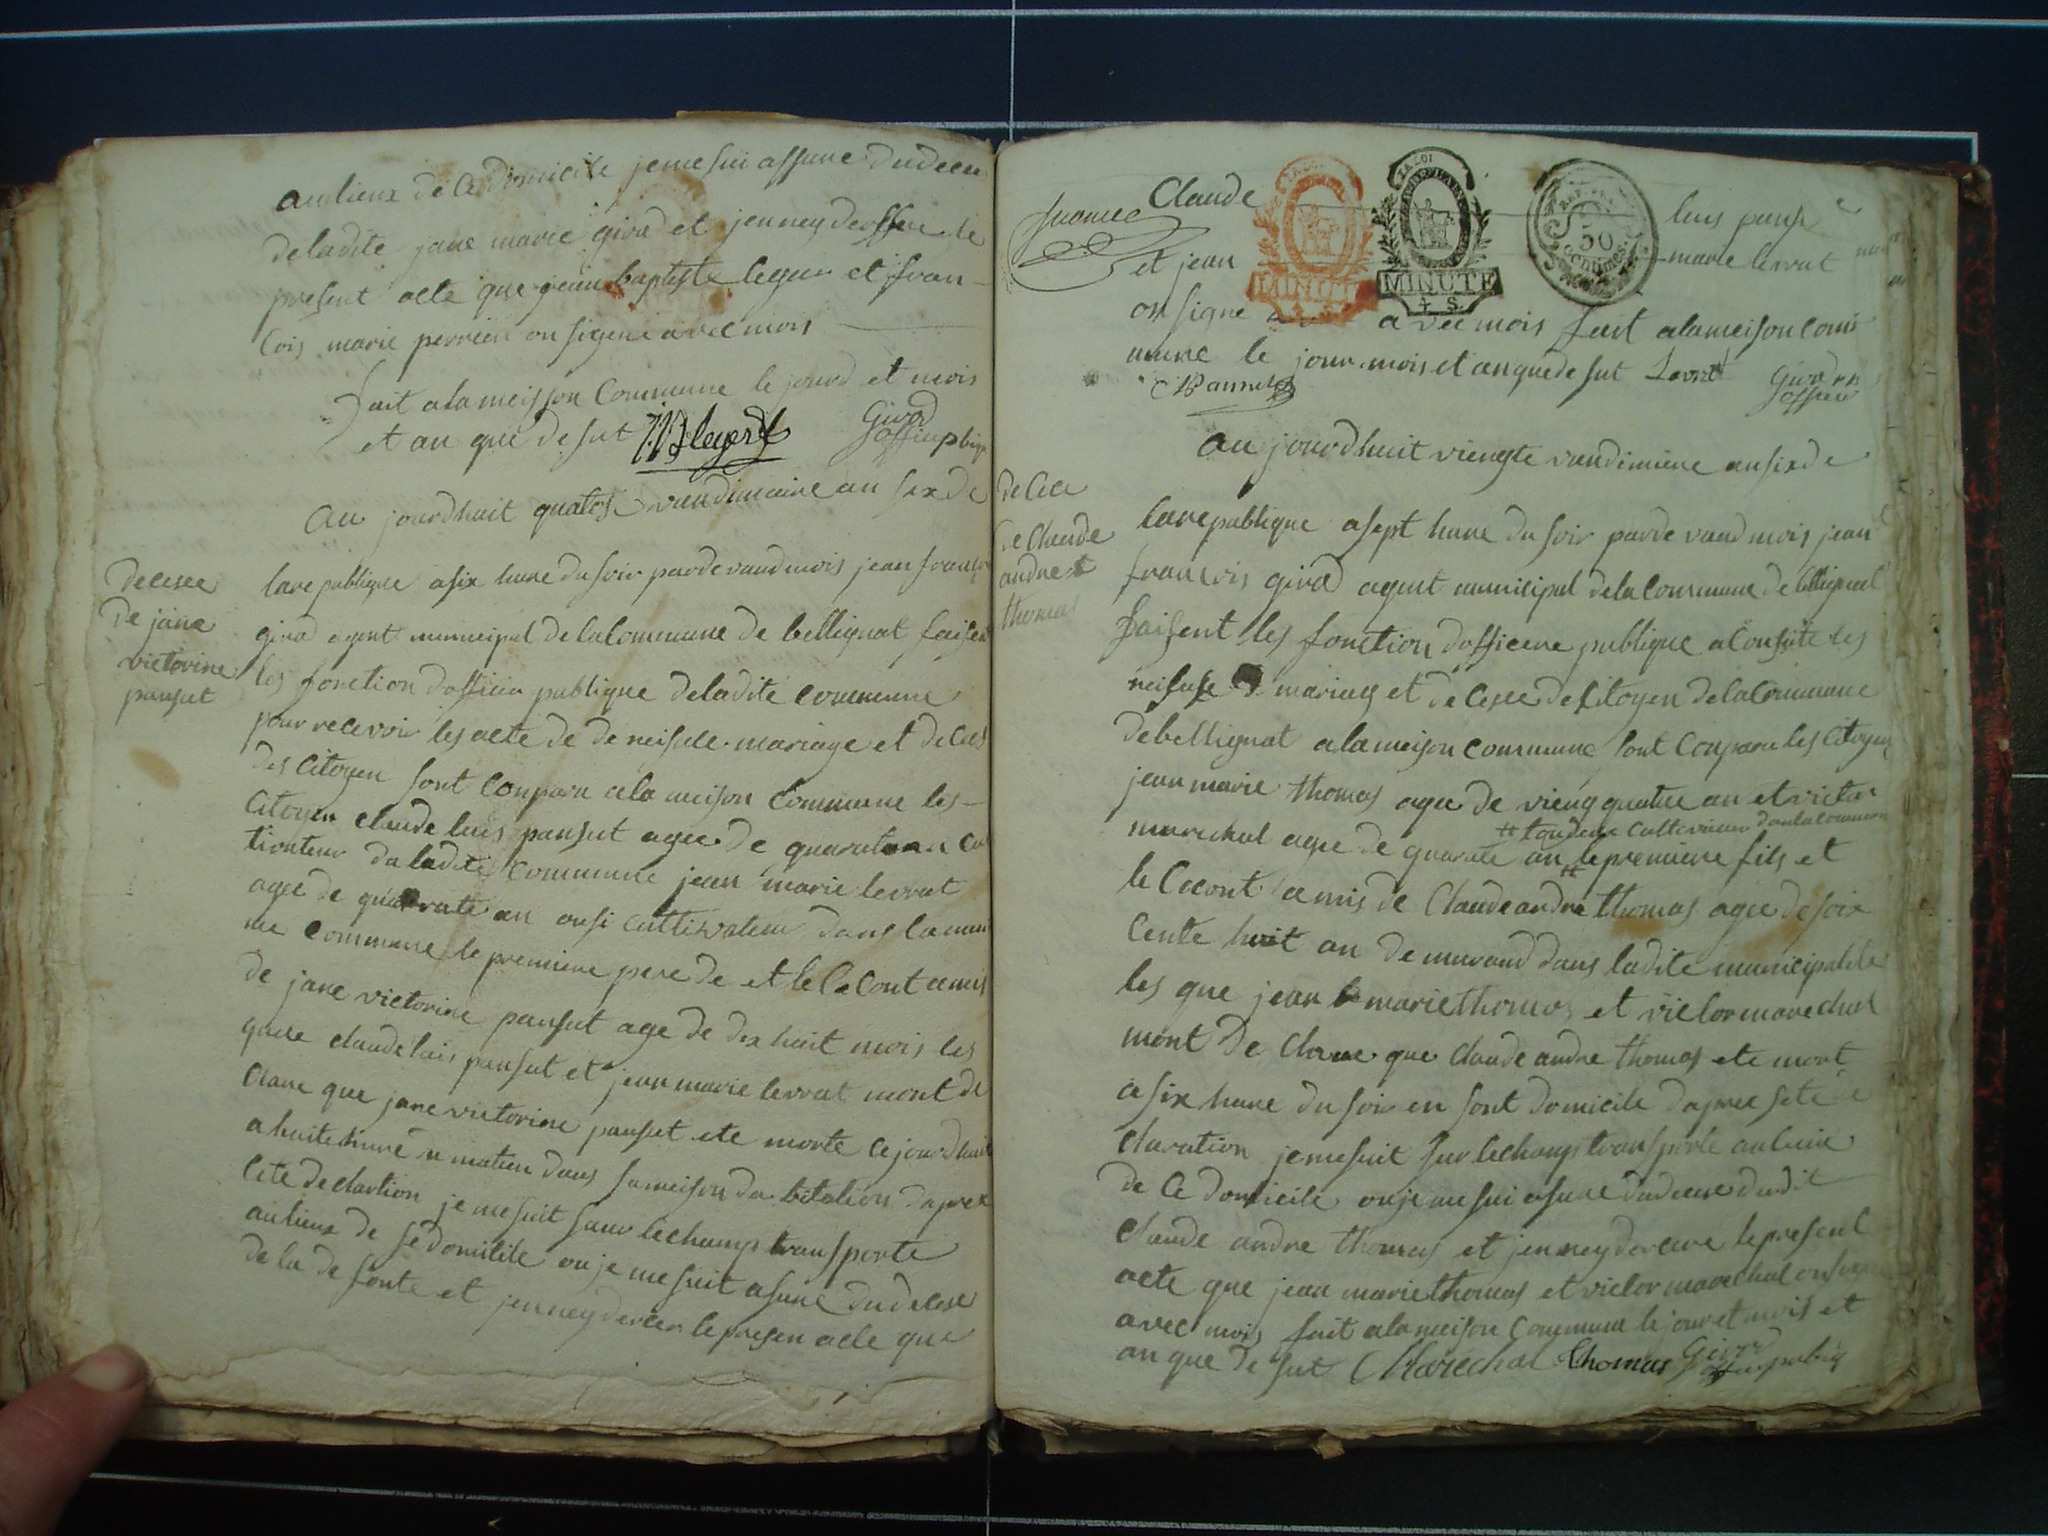 au lieux de ce domicile je me sui assure du deces
de ladite jane marie girod et jenney dersse le
present acte que jean baptiste leger et fran-
cois marie perrien on signe avec mois
fait a la meisson Commune le jourd et mois
et an que de sut JB leger Girod
officiepbliqe
au jourdhuit quatose vandimaire an six de
decesee
de jane
victorine
pansut
la republique a six hure du soir pardevand mois jean francois
girod agent municipal de la commune de bellignat faisent
les fonction dofficier publique de ladite commune
pour recevoir les acte de de neisule mariage et deces
des Citoyen sont Conparu a la meison Commune les
Citoyen claude luis pansut agee de quarate an cul
tivateur da ladite Commune jean marie levrat
age de quarrate an ausi cultivateur dans la mem
me Commune le premiere pere de et le Cecont amis
de jane victorine pansut age de dix huit mois les
quele claude luis pansut et jean marie levrat mont de
clare que jane victorine pansut ete morte ce jourdhuit
a huite hure u matien dans sa meison da bitalion dapres
cete declartion je me suit suur le champ transporte
au lieux de se domicile ou je me suit asure du decese
de la de fonte et jenney dercer le presen acte que
Claude luis pansu
et jean marie levrat
on signe avec mois fait a la meison com
mune le jour mois et an que de sut Levrat Girod
C pansut officie
au jourdhuit viengte vandimiere an six de
decee
de Claude
andre
thomas
la republique a sept hure du soir par de vand mois jean
francois girod agent municipal de la Commune de bellignat
faisent les fonction dofficere publique a Consute les
neisuse mariaes et decese de Citoyen de la Commune
de bellignat a la meison commune sont Conparu les Citoyen
jean marie thomas agee de vieng quatre an et victor
marechal agee de quarate an le premiere fils et
tt toudeux cultivateur dans la commun
le Cecont amis de Claude andre tt thomas agee de soix
cente huit an demurand dans ladite municipalite
les que jean marie thomas et victor marechal
mont de Clarre que claude andre thomas ete mort
a six hure du soir en sont domicile dapres sete de
claration je me suit sur le champ transporte au luix
de ce domicile ou je me sui asure du decese du dit
claude andre thomas et jenney dercere le present
acte que jean marie thomas et victor marechal on signe
avec mois fait a la meison Commune le jour et mois et
an que de sut Marechal thomas Girod
officiepubliq
LA LOI
MINUTE
LA LOI
MINUTE
4 S.
50
Centimes